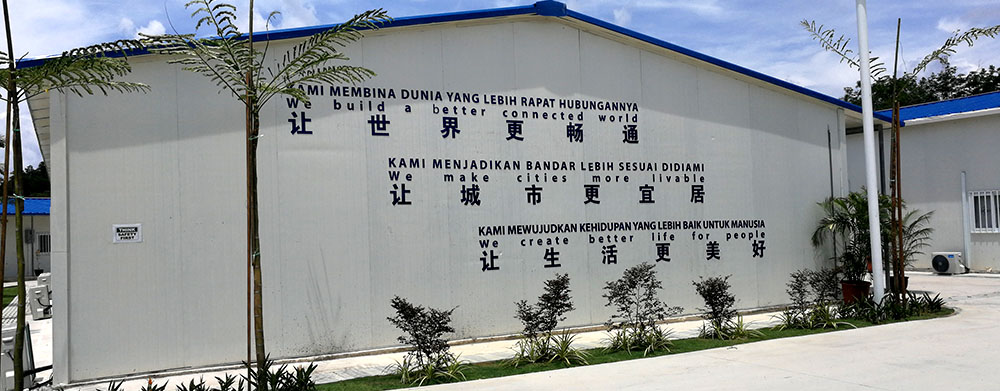 KAMI MEMBINA DUNIA YANG LEBIH RAPAT HUBUNGANNYA
We build a better connected world
让世界更畅通
KAMI MENJADIKAN BANDAR LEBIH SESUAI DIDIAMI
We make cities more livable
让城市更宜居
KAMI MEWUJUDKAN KEHIDUPAN YANG LEBIH BAIK UNTUK MANUSIA
We create better life for people
让生活更美好
THINK
SAFETY
FIRST